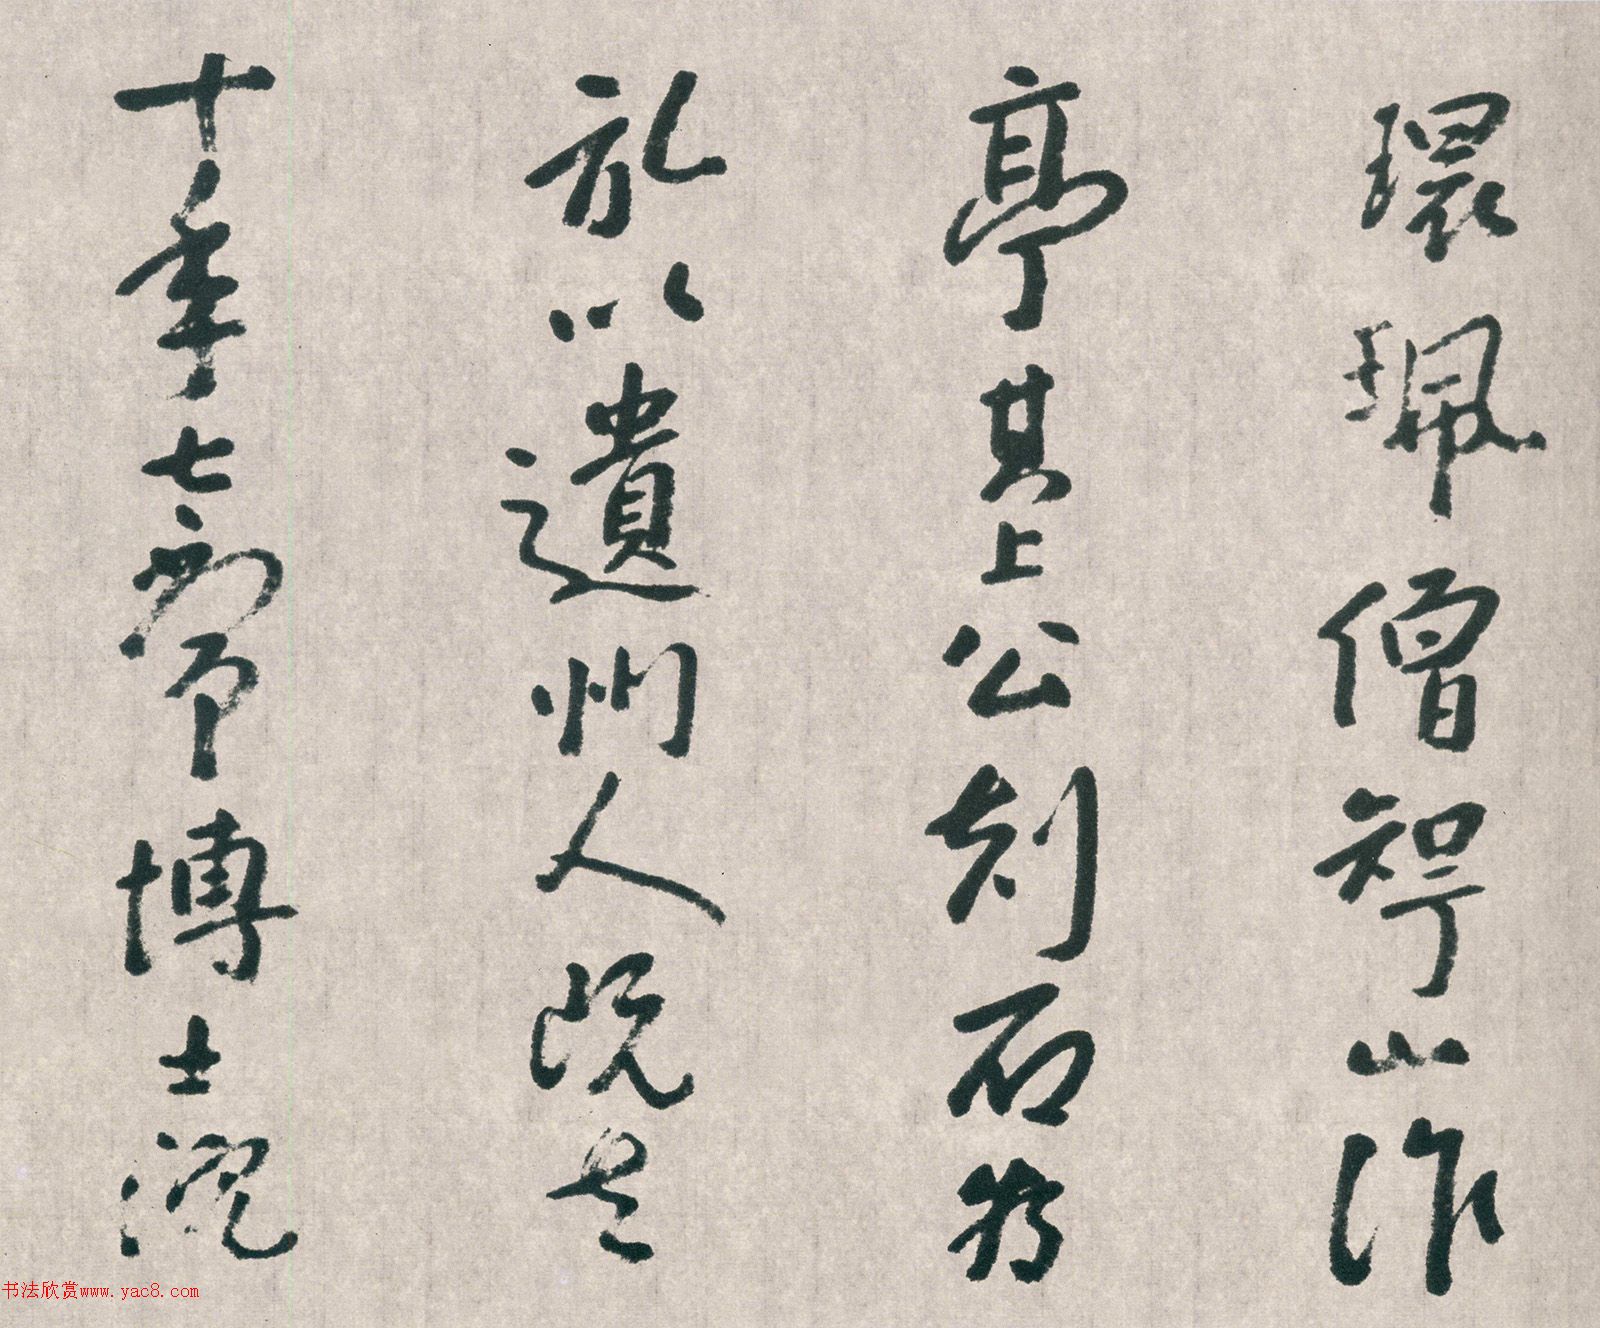 環珮僧智仙作
亭其上公刻石為
記以遺州人既去
十年太常博士沈
书法欣赏www.yac8.com